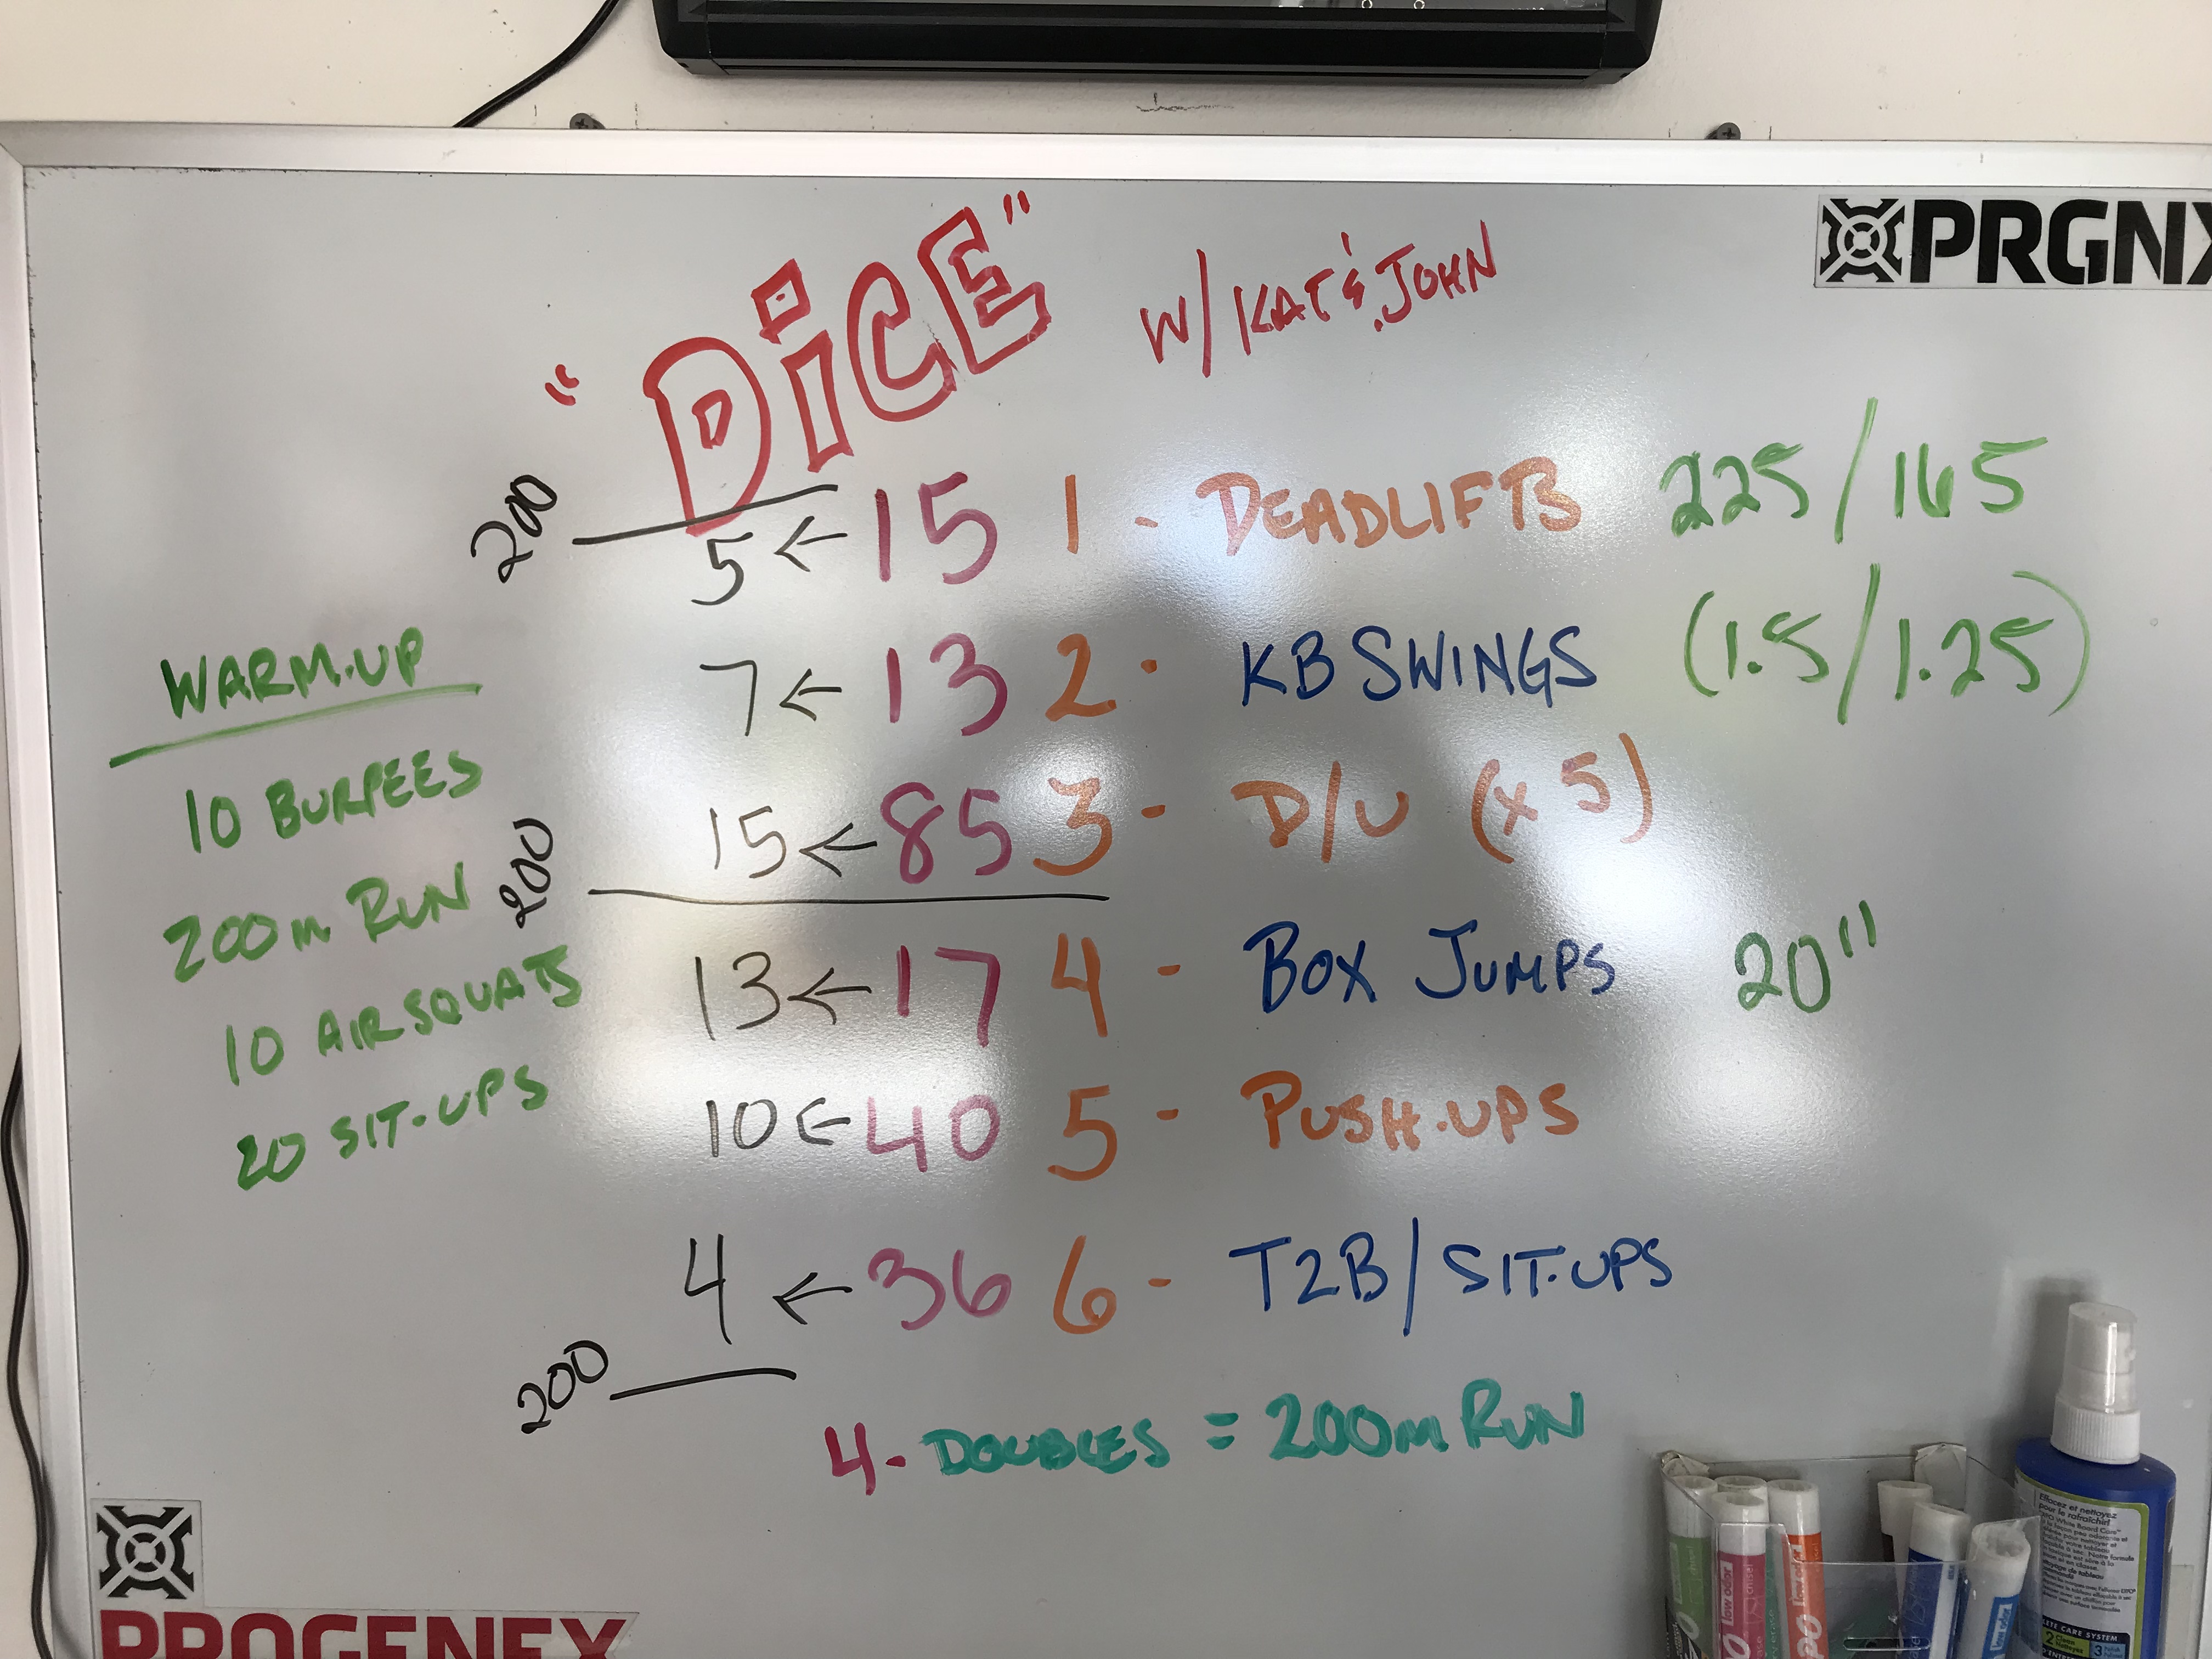 "DiCE" W/ KAT & JOHN
PRGNX
200
5 ← 15 1 - DEADLIFTS 225/165
7 ← 13 2 - KB SWINGS (1.5/1.25)
15 ← 85 3 - D/U (x 5)
200
13 ← 17 4 - BOX JUMPS 20"
10 ← 40 5 - PUSH-UPS
4 ← 36 6 - T2B/SIT-UPS
200
4 - DOUBLES = 200m RUN
WARM-UP
10 BURPEES
200m RUN
10 AIR SQUATS
20 SIT-UPS
PROGENEX
Effacez et nettoyez
pour le rafraîchir!
low odor